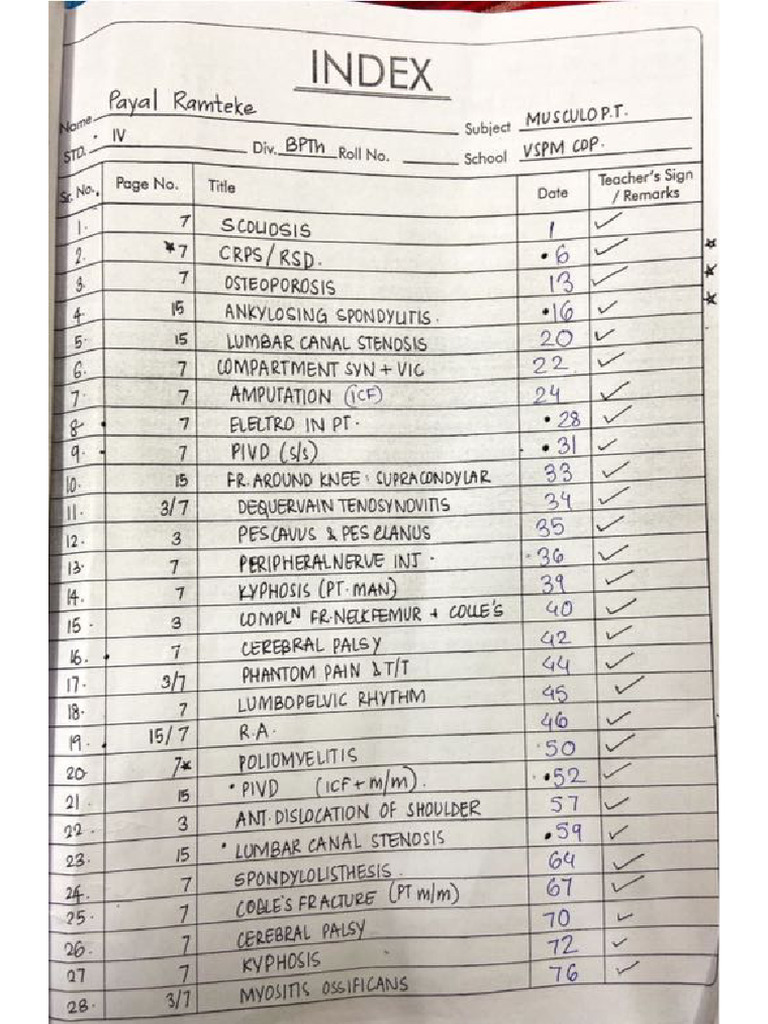 INDEX
Name Payal Ramteke Subject MUSCULO P.T.
STD. IV Div. BPTh Roll No. School VSPM COP.
Sr. No. Page No. Title Date Teacher's Sign / Remarks
1. 7 SCOLIOSIS 1 ✓
2. *7 CRPS/RSD. •6 ✓ *
3. 7 OSTEOPOROSIS 13 ✓ *
4. 15 ANKYLOSING SPONDYLITIS. •16 ✓ *
5. 15 LUMBAR CANAL STENOSIS 20 ✓
6. 7 COMPARTMENT SYN + VIC 22 ✓
7. 7 AMPUTATION (ICF) 24 ✓
8. • 7 ELECTRO IN PT. •28 ✓
9. • 7 PIVD (S/S) •31 ✓
10. 15 FR. AROUND KNEE : SUPRACONDYLAR 33 ✓
11. 3/7 DEQUERVAIN TENOSYNOVITIS 34 ✓
12. 3 PES CAVUS & PES PLANUS 35 ✓
13. 7 PERIPHERAL NERVE INJ. •36 ✓
14. 7 KYPHOSIS (PT. MAN) 39 ✓
15. 3 COMPLN FR. NECK FEMUR + COLLE'S 40 ✓
16. • 7 CEREBRAL PALSY 42 ✓
17. 3/7 PHANTOM PAIN & T/T 44 ✓
18. 7 LUMBOPELVIC RHYTHM 45 ✓
19. • 15/7 R.A. 46 ✓
20 7* POLIOMYELITIS •50 ✓
21. 15 • PIVD (ICF + m/m). •52 ✓
22. 3 ANT. DISLOCATION OF SHOULDER 57 ✓
23. 15 • LUMBAR CANAL STENOSIS •59 ✓
24. 7 SPONDYLOLISTHESIS. 64 ✓
25. 7 COLLE'S FRACTURE (PT m/m) 67 ✓
26. 7 CEREBRAL PALSY 70 ✓
27 7 KYPHOSIS 72 ✓
28. 3/7 MYOSITIS OSSIFICANS 76 ✓